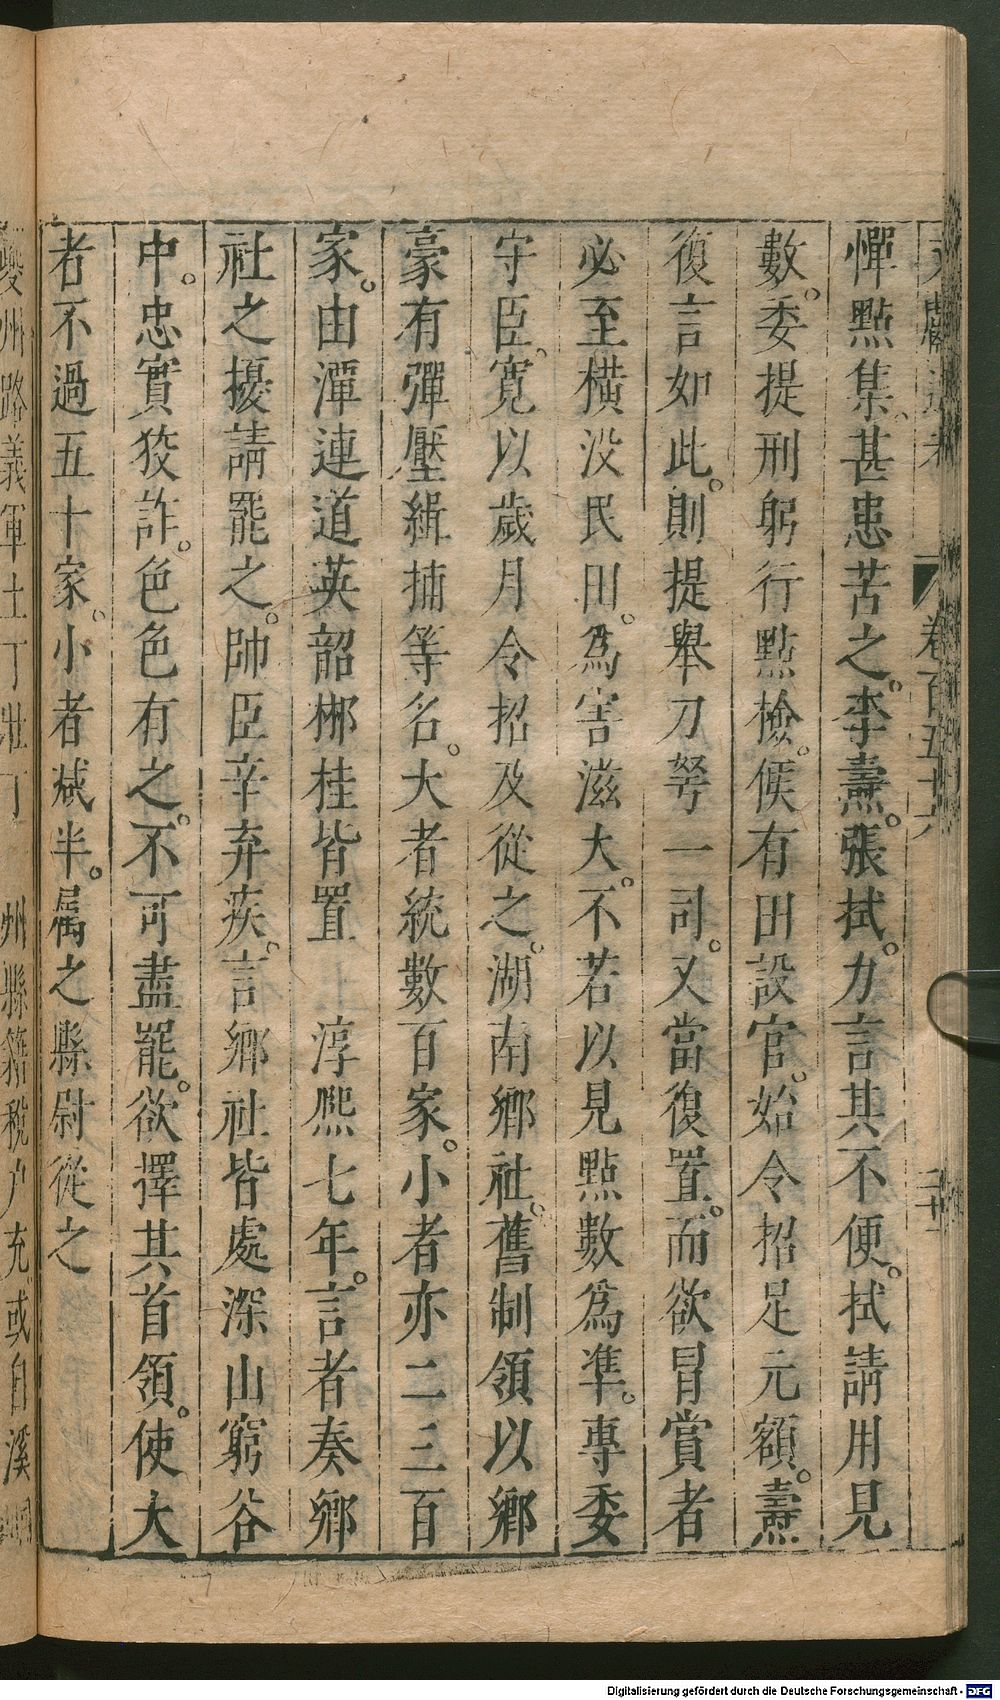 文獻通考 卷百五十六
憚點集。甚患苦之。李燾。張拭。力言其不便。拭請用見
數。委提刑躬行點檢。候有田設官。始令招足元額。燾
復言如此。則提舉刀弩一司。又當復置。而欲冒賞者
必至橫没民田。爲害滋大。不若以見點數爲準。專委
守臣。寬以歲月令招及從之。湖南鄉社。舊制領以鄉
豪有彈壓緝捕等名。大者統數百家。小者亦二三百
家。由潭連道英韶郴桂皆置 淳熙七年。言者奏鄉
社之擾請罷之。帥臣辛弃疾。言鄉社皆處深山窮谷
中。忠實狡詐。色色有之。不可盡罷。欲擇其首領。使大
者不過五十家。小者减半。属之縣尉從之
州路義軍土丁壯丁 州縣籍稅户充或自溪
Digitalisierung gefördert durch die Deutsche Forschungsgemeinschaft - DFG